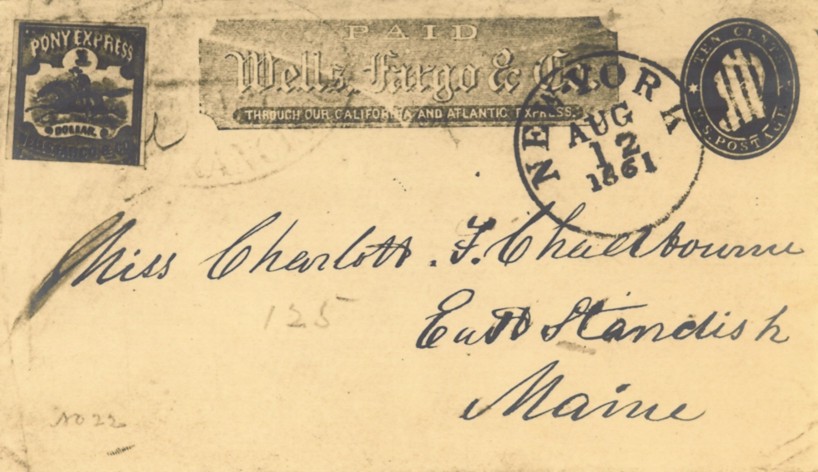 PONY EXPRESS
DOLLAR.
PAID
Wells, Fargo & Co.
THROUGH OUR CALIFORNIA AND ATLANTIC EXPRESS.
NEW YORK
AUG
12
1861
TEN CENTS
U.S. POSTAGE
Miss Charlott. F. Chadbourne
East Standish
Maine
125
No 22